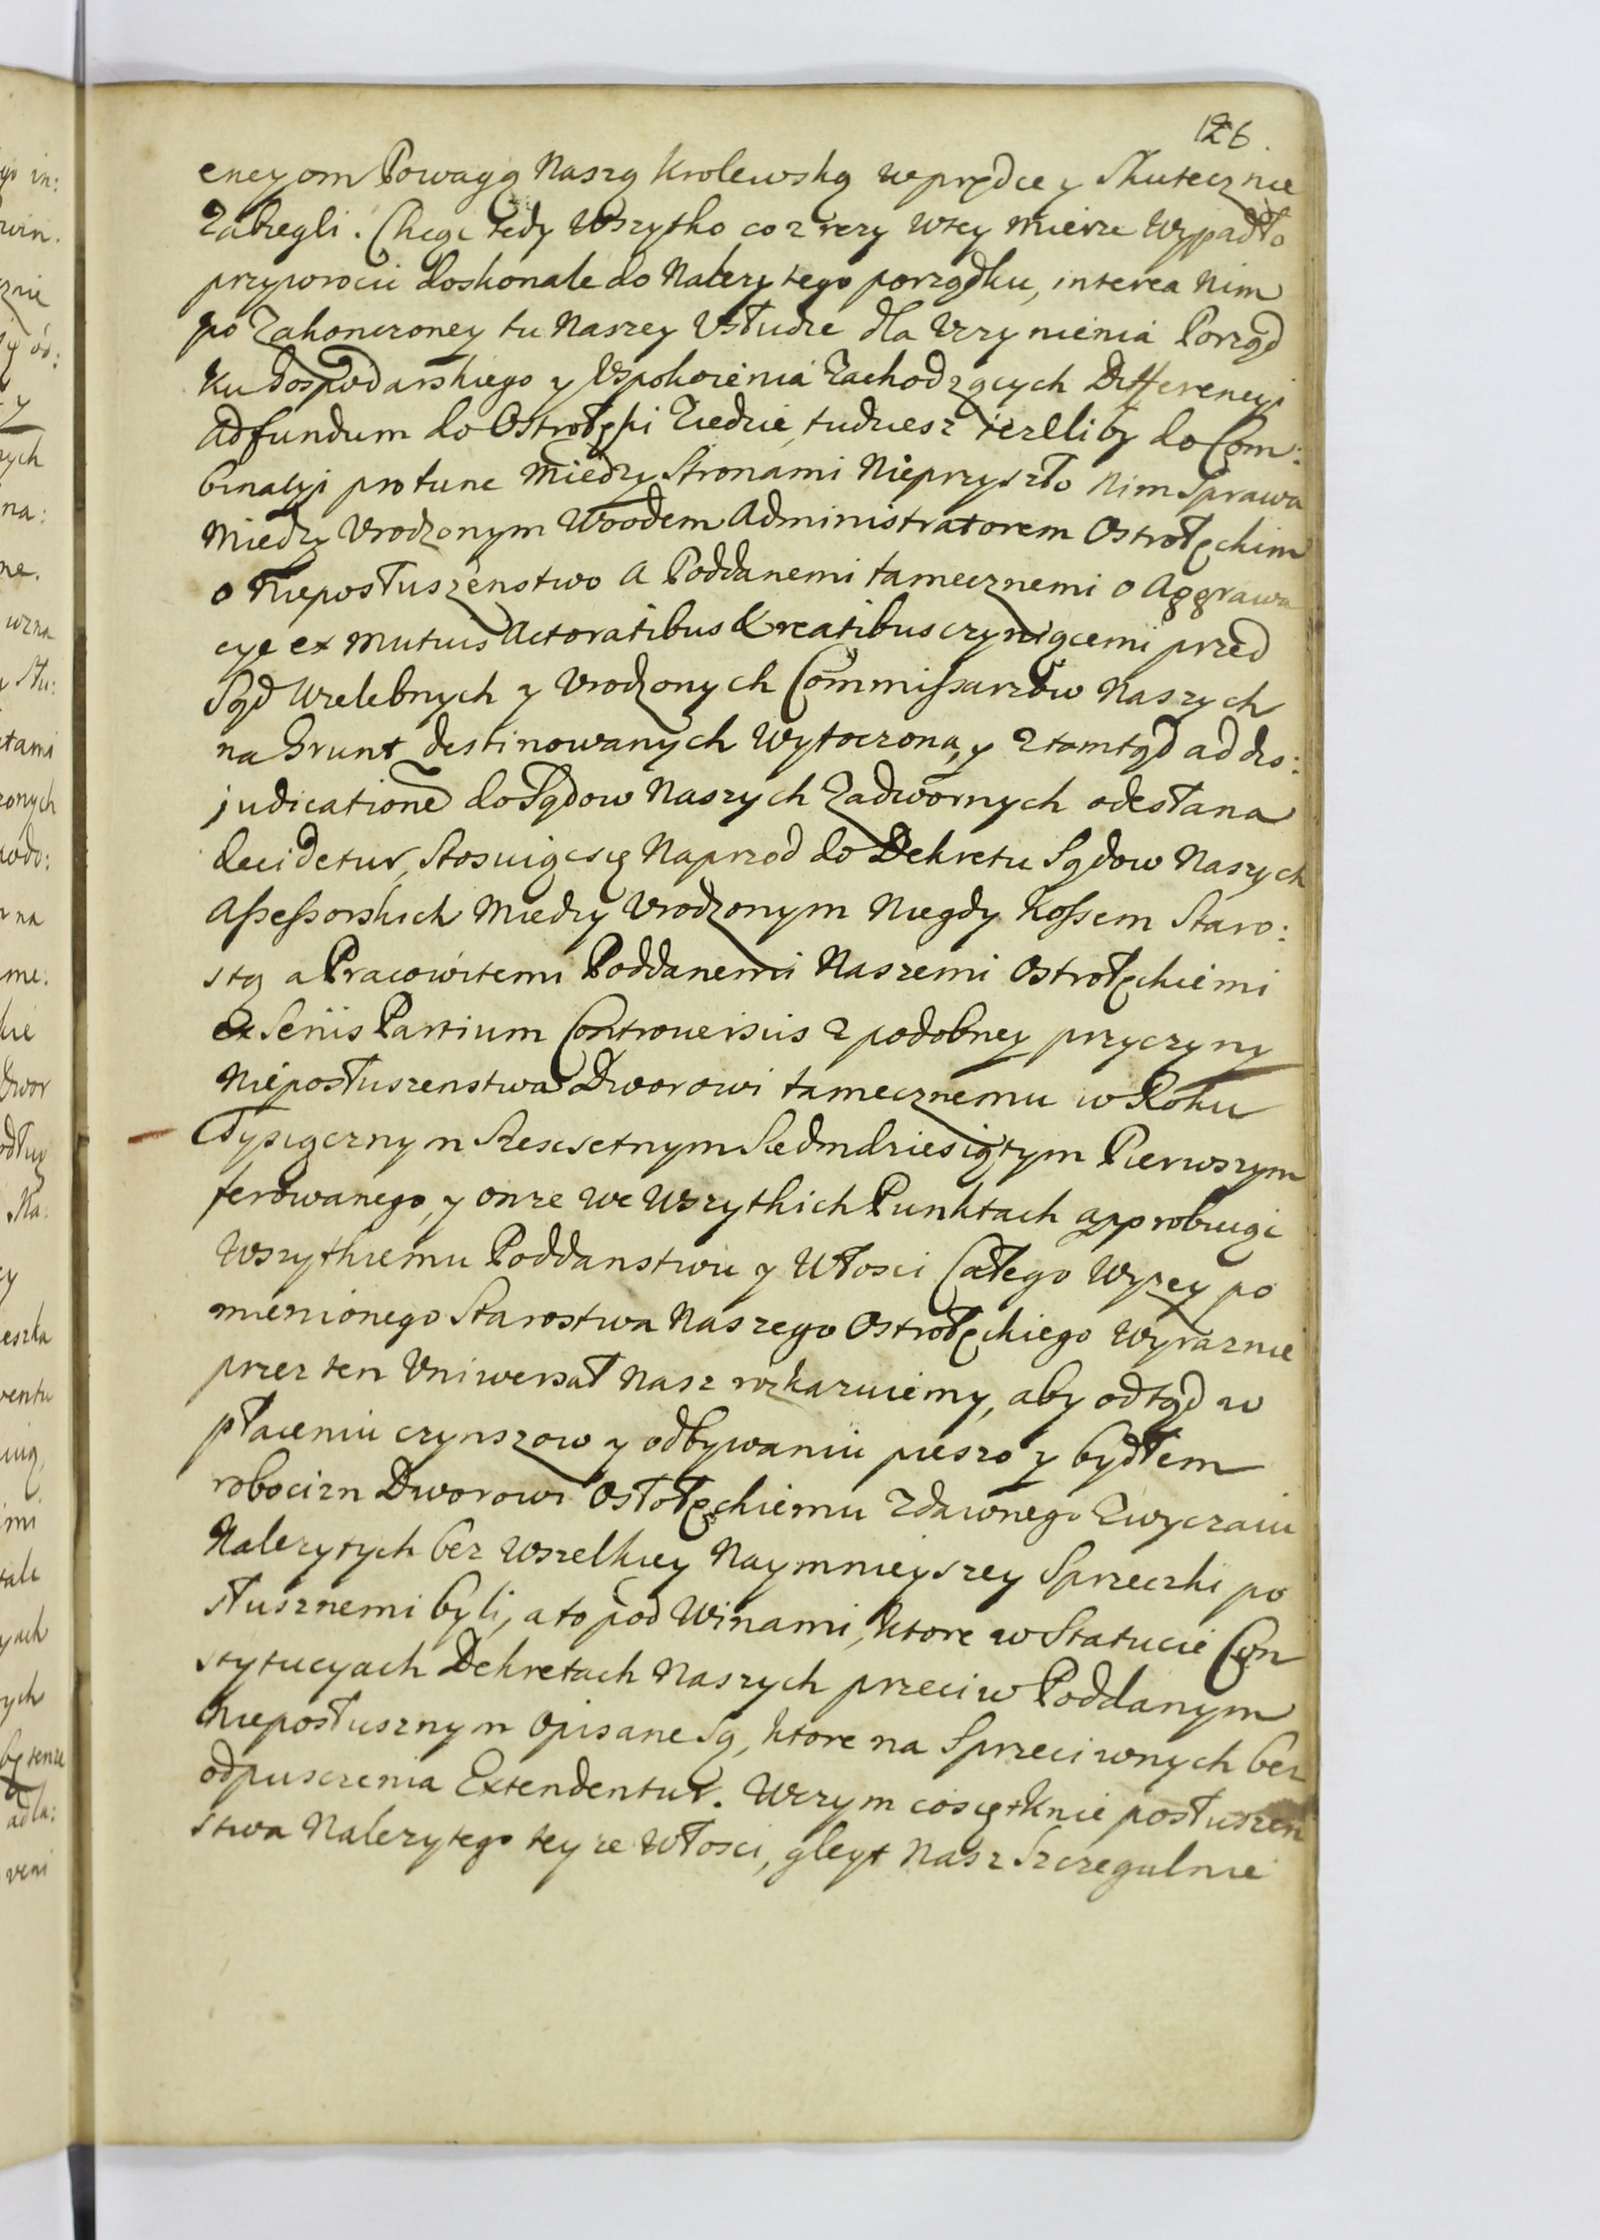 126.
encyom Powagą Naszą Krolewską wprędce y Skutecznie
Zabiegli. Chcąc tedy Wszytko co z rezy wtey mierze Wypadło
przywrocić doskonale do Należytego porządku, interea nim
po Zakonczoney tu Naszey Usłudze dla Uczynienia Porząd
ku Gospodarskiego y Uspokoienia Zachodzących Differencyi
ad fundum do Ostrołęki Ziedzie, tudziesz ieżlliby do Com:
binacyi pro tunc między Stronami Nieprzyszło Nim Sprawa
Między Urodzonym Woodem Administratorem Ostrołęckim
o Nieposłuszenstwo a Poddanemi tamecznemi o Aggrawa
cye ex mutuis Actoratibus & reatibus czyniącemi przed
Sąd Wielebnych y Urodzonych Commissarzow Naszych
na Grunt destinowanych Wytoczona, y ztamtąd ad dis:
judicationē do Sądow Naszych Zadwornych odesłana
decidetur, Stosuiącsię Naprzod do Dekretu Sądow Naszych
Assessorskich Miedzy Urodzonym Niegdy Kossem Staro:
stą a Pracowitemi Poddanemi Naszemi Ostrołęckiemi
Ex Seriis Partium Controversiis z podobney przyczyny
Nieposłuszenstwa Dworowi tamecznemu w Roku
Tysiącznym Szescsetnym Siedmdziesiątym Pierwszym
ferowanego, y onże We Wszytkich Punktach approbuiąc
Wszytkiemu Poddanstwu y Włosci Całego Wyżey po
mienionego Starostwa Naszego Ostrołęckiego Wyraznie
przez ten Uniwersał Nasz rozkazuiemy, aby odtąd w
płaceniu czynszow y odbywaniu pieszo y bydłem
robocizn Dworowi Ostołęckiemu zdawnego Zwyczaiu
Należytych bez Wszelkiey Naymnieyszey Sprzeczki po
słusznemi byli, a to pod Winami, ktore w Statucie Con
stytucyach Dekretach Naszych przeciw Poddanym
Nieposłusznym Opisane Są, ktore na Sprzeciwnych bez
odpuszczenia Extendentur. Wczym cosiętknie posłuszeń
stwa Należytego teyże Włosci, gleyt Nasz Szczegulnie